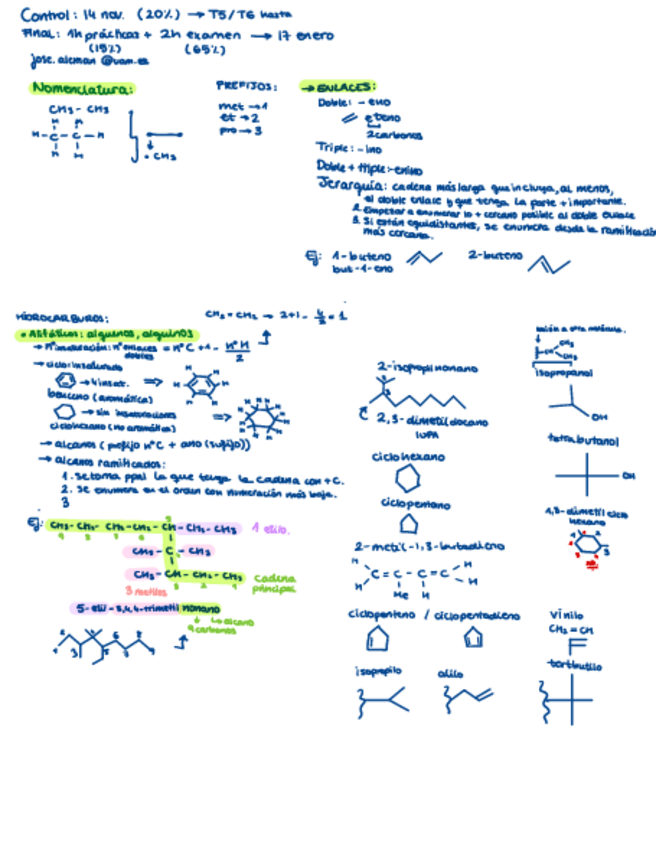 Control: 14 nov. (20%) → T5/T6 hasta
Final: 1h prácticas + 2h examen → 17 enero
(15%) (65%)
jose.aleman @uam.es
Nomenclatura:
CH₃ - CH₃
H H
H-C-C-H
H H
• CH₃
PREFIJOS:
met → 1
et → 2
pro → 3
→ ENLACES:
Doble: - eno
eteno
2carbonos
Triple: - ino
Doble + triple: -enino
Jerarquía: cadena más larga que incluya, al menos,
el doble enlace y que tenga la parte + importante.
2. Empezar a enumerar lo + cercano posible al doble enlace
3. Si están equidistantes, se enumera desde la ramificación
más cercana.
Ej: 1-buteno 2-buteno
but-1-eno
HIDROCARBUROS:
CH₂ = CH₂ → 2+1 - 4/2 = 1
• Alifáticos: alquenos, alquinos
→ nºinsaturación: nº enlaces dobles = nº C + 1 - nº H / 2
→ ciclo: insaturado
→ 4 insat. ⇒
benceno (aromática)
→ sin insaturaciones ⇒
ciclohexano (no aromática)
→ alcanos (prefijo nº C + ano (sufijo))
→ alcanos ramificados:
1. se toma ppal la que tenga la cadena con + C.
2. se enumera en el orden con numeración más baja.
3
Ej: CH₃ - CH₂ - CH₂ - CH₂ - CH - CH₂ - CH₃ 1 etilo.
CH₃ - C - CH₃
CH₃ - CH - CH₂ - CH₃ cadena
principal
3 metilos
5-etil-3,4,4-trimetil nonano
alcano
9 carbonos
2-isopropilnonano
2,3-dimetildecano
IUPA
ciclohexano
ciclopentano
2-metil-1,3-butadieno
H H
C = C - C = C
H Me H H
ciclopenteno / ciclopentadieno
isopropilo alilo
unión a otra molécula.
CH₃
CH
CH₃
isopropanol
OH
tetrabutanol
OH
1,3-dimetil ciclo
hexano
NO
vinilo
CH₂ = CH
tertbutilo